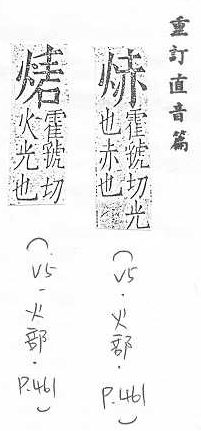 重訂直音篇
焃
霍號切光
也赤也
(V5.火部.P.461)
霍號切
火光也
(V5.火部.P.461)